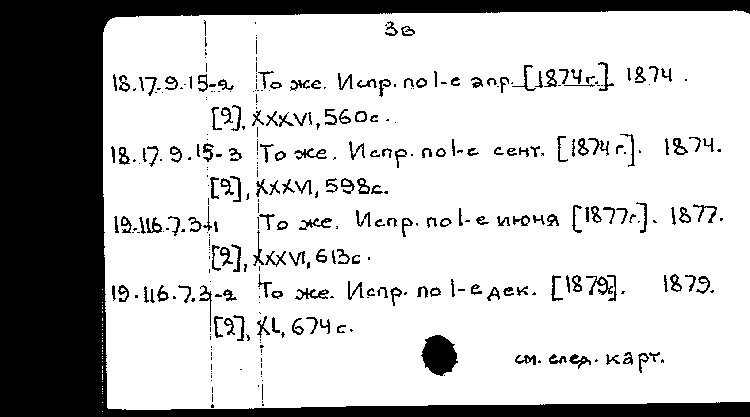 3в
18.17.9.15-2 То же. Испр. по 1-е апр. [1874 г.]. 1874.
[2], XXXVI, 560 с.
18.17.9.15-3 То же. Испр. по 1-е сент. [1874 г.]. 1874.
[2], XXXVI, 598 с.
19.116.7.3-1 То же. Испр. по 1-е июня [1877 г.]. 1877.
[2], XXXVI, 613 с.
19.116.7.3-2 То же. Испр. по 1-е дек. [1879 г]. 1879.
[2], XL, 674 с.
см. след. карт.